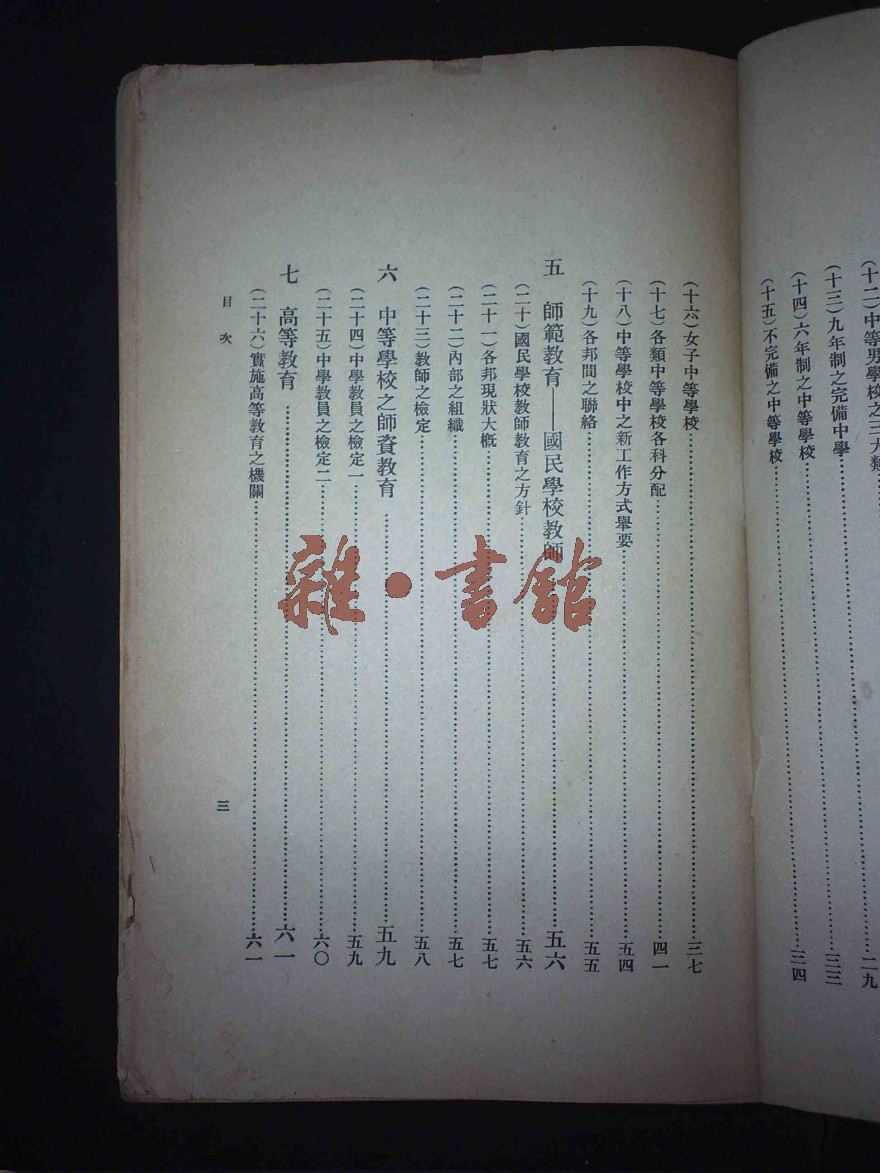 (十二)中等男學校之三大類……二九
(十三)九年制之完備中學……三三
(十四)六年制之中等學校……三四
(十五)不完備之中等學校……
(十六)女子中等學校……三七
(十七)各類中等學校各科分配……四一
(十八)中等學校中之新工作方式舉要……五四
(十九)各邦間之聯絡……五五
五 師範教育——國民學校教師……五六
(二十)國民學校教師教育之方針……五六
(二十一)各邦現狀大概……五七
(二十二)內部之組織……五七
(二十三)教師之檢定……五八
六 中等學校之師資教育……五九
(二十四)中學教員之檢定一……五九
(二十五)中學教員之檢定二……六〇
七 高等教育……六一
(二十六)實施高等教育之機關……六一
目次
三
雜·書館